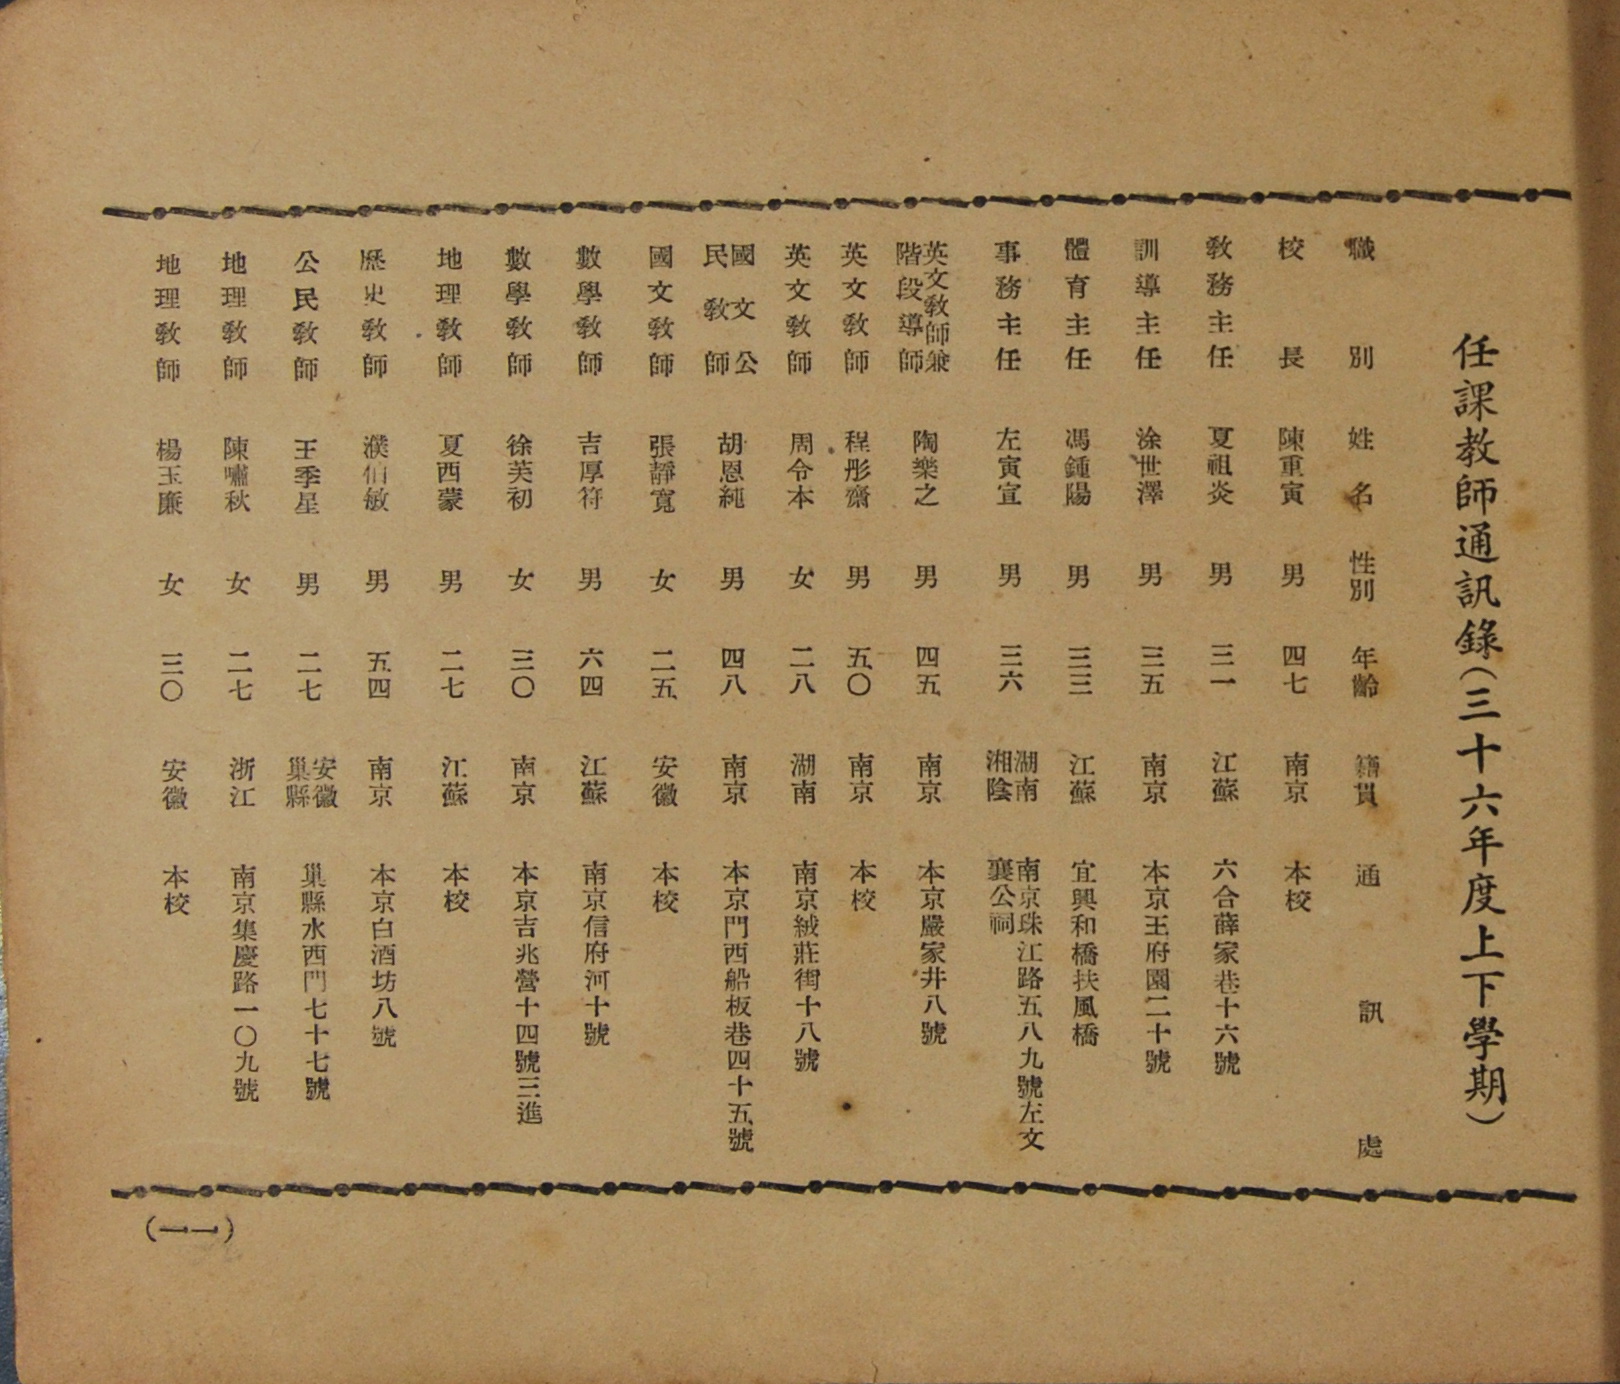 任課教師通訊錄(三十六年度上下學期)
職別 姓名 性別 年齡 籍貫 通訊處
校長 陳重寅 男 四七 南京 本校
教務主任 夏祖炎 男 三一 江蘇 六合薛家巷十六號
訓導主任 涂世澤 男 三五 南京 本京王府園二十號
體育主任 馮鍾陽 男 三三 江蘇 宜興和橋扶風橋
事務主任 左寅宣 男 三六 湖南湘陰 南京珠江路五八九號左文襄公祠
英文教師兼階段導師 陶樂之 男 四五 南京 本京嚴家井八號
英文教師 程彤齋 男 五〇 南京 本校
英文教師 周令本 女 二八 湖南 南京絨莊街十八號
國文公民教師 胡恩純 男 四八 南京 本京門西船板巷四十五號
國文教師 張靜寬 女 二五 安徽 本校
數學教師 吉厚符 男 六四 江蘇 南京信府河十號
數學教師 徐芙初 女 三〇 南京 本京吉兆營十四號三進
地理教師 夏西蒙 男 二七 江蘇 本校
歷史教師 濮伯敏 男 五四 南京 本京白酒坊八號
公民教師 王季星 男 二七 安徽巢縣 巢縣水西門七十七號
地理教師 陳嘯秋 女 二七 浙江 南京集慶路一〇九號
地理教師 楊玉廉 女 三〇 安徽 本校
(一一)